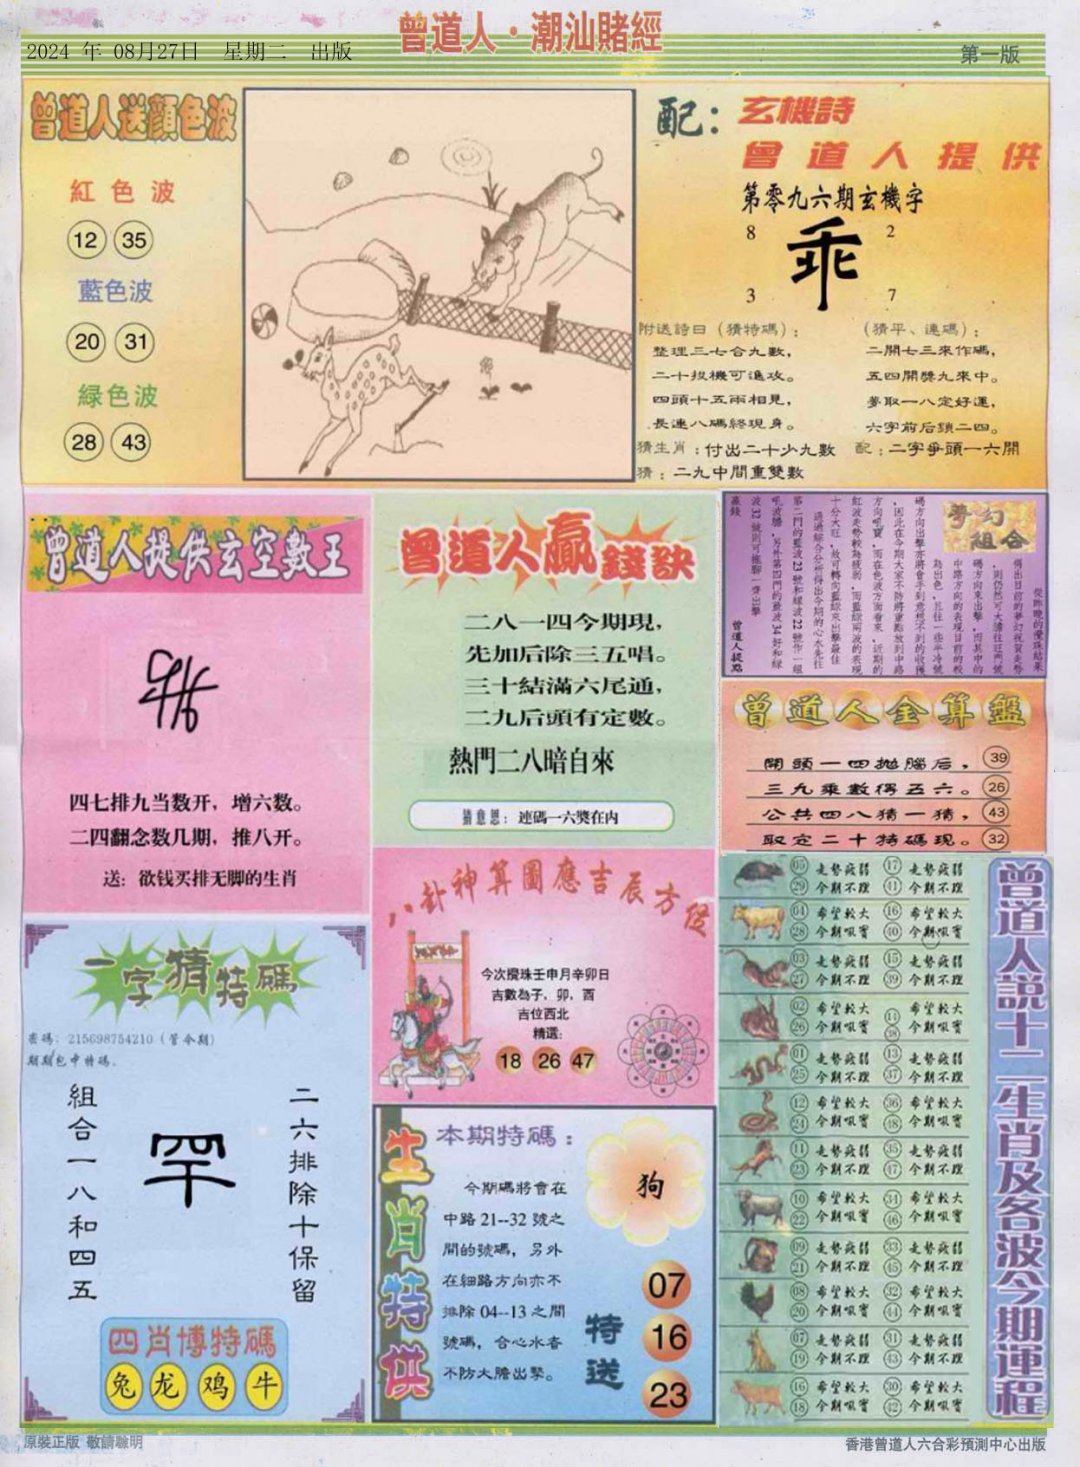 2024 年 08月27日 星期二 出版
曾道人·潮汕賭經
第一版
曾道人送顏色波
紅色波
12 35
藍色波
20 31
緑色波
28 43
配：玄機詩
曾道人提供
第零九六期玄機字
8 2
乖
3 7
附送詩曰（猜特碼）：
整理三七合九數，
二十投機可進攻。
四頭十五兩相見，
長連八碼終現身。
猜生肖：付出二十少九數
猜：二九中間重雙數
（猜平、連碼）：
二開七三來作碼，
五四開獎九來中。
夢取一八定好運，
六字前后鎖二四。
配：二字爭頭一六開
曾道人提供玄空數王
四七排九当数开，增六数。
二四翻念数几期，推八开。
送：欲钱买排无脚的生肖
曾道人贏錢訣
二八一四今期現，
先加后除三五唱。
三十結滿六尾通，
二九后頭有定數。
熱門二八暗自來
猜意思：連碼一六獎在内
夢幻組合
曾道人提點
曾道人金算盤
開頭一四拋腦后，39
三九乘數得五六。26
公共四八猜一猜，43
取定二十特碼現。32
八卦神算圖應吉辰方位
今次攪珠壬申月辛卯日
吉數為子，卯，酉
吉位西北
精選：
18 26 47
一字猜特碼
密碼：215698754210（管今期）
期期包中特碼.
組合一八和四五
罕
二六排除十保留
四肖博特碼
兔 龙 鸡 牛
生肖特供
本期特碼：
今期碼將會在
中路 21--32 號之
間的號碼，另外
在細路方向亦不
排除 04--13 之間
號碼，合心水者
不防大膽出擊。
狗
特送
07
16
23
曾道人説十二生肖及各波今期運程
05 29 走勢疲弱 今期不理 17 41 走勢疲弱 今期不理
04 28 希望較大 今期吼實 16 40 希望較大 今期吼實
03 27 走勢疲弱 今期不理 15 39 走勢疲弱 今期不理
02 26 希望較大 今期吼實 14 38 希望較大 今期吼實
01 25 走勢疲弱 今期不理 13 37 走勢疲弱 今期不理
12 24 希望較大 今期吼實 36 48 希望較大 今期吼實
11 23 走勢疲弱 今期不理 35 47 走勢疲弱 今期不理
10 22 希望較大 今期吼實 34 46 希望較大 今期吼實
09 21 走勢疲弱 今期不理 33 45 走勢疲弱 今期不理
08 20 希望較大 今期吼實 32 44 希望較大 今期吼實
07 19 走勢疲弱 今期不理 31 43 走勢疲弱 今期不理
16 18 希望較大 今期吼實 30 42 希望較大 今期吼實
原裝正版 敬請聡明
香港曾道人六合彩預測中心出版